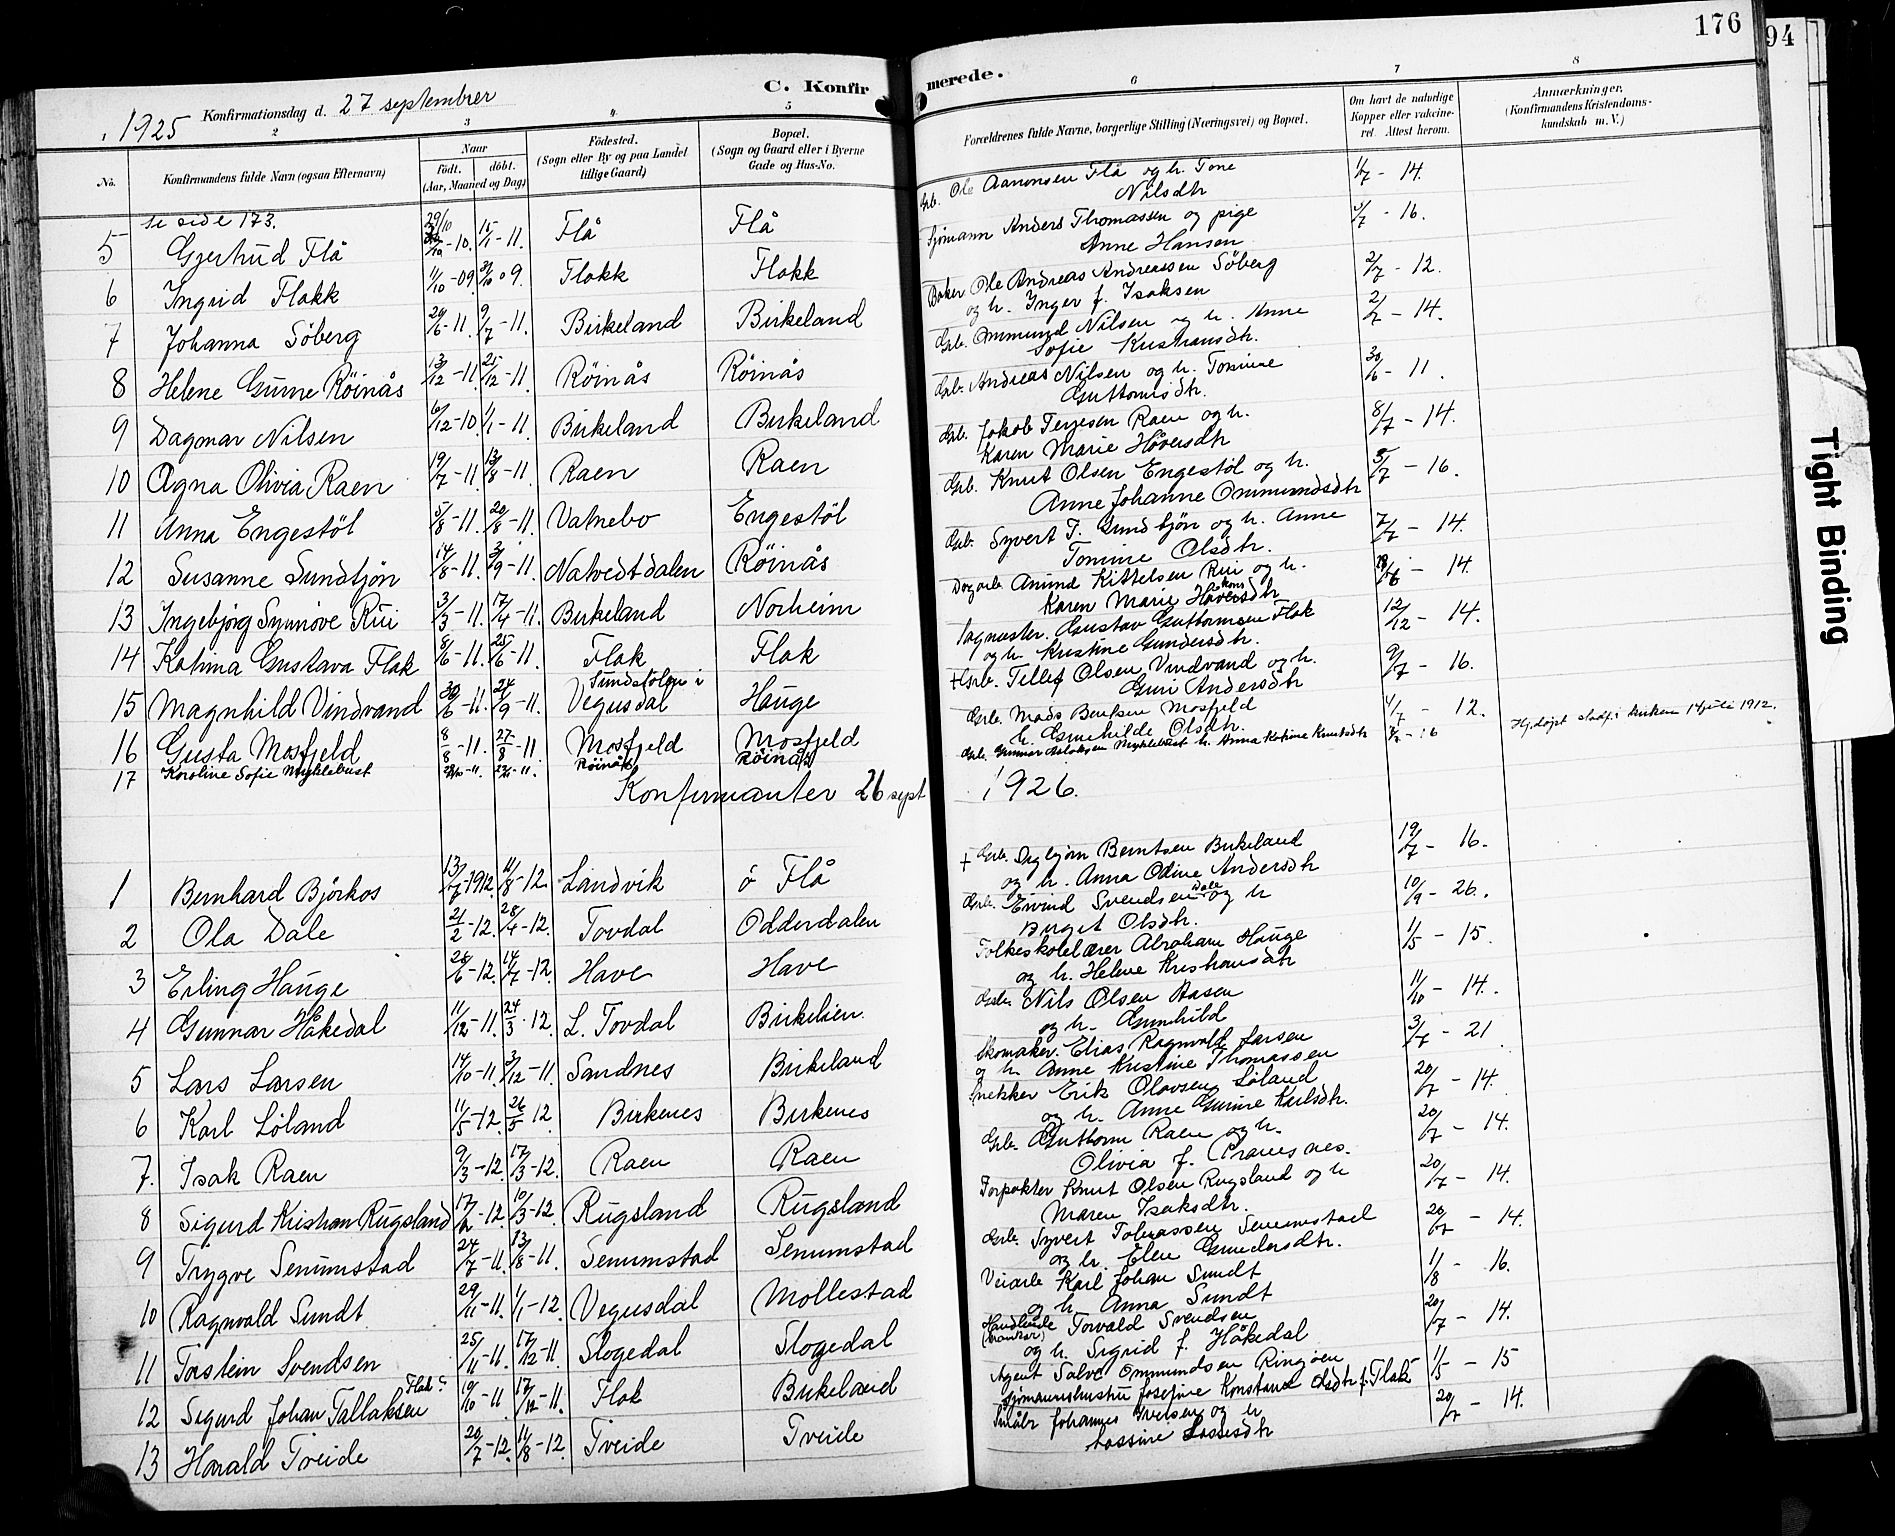 176
94
C. Konfir
merede.
1925
Konfirmationsdag d. 27 septembrer
1 2 3 4 5 6 7 8
No.
Konfirmandens fulde Navn (ogsaa Efternavn)
Naar
født. døbt.
(Aar, Maaned og Dag)
Fødested.
(Sogn eller By og paa Landet
tillige Gaard)
Bopæl.
(Sogn og Gaard eller i Byerne
Gade og Hus-No.
Forældrenes fulde Navne, borgerlige Stilling (Næringsvei) og Bopæl.
Om havt de naturlige
Kopper eller vaccine-
ret. Attest herom.
Anmærkninger,
(Konfirmandens Kristendoms-
kundskab m. V.)
se side 173.
5 Gjertrud Flå 29/10 -10. 15/1 -11. Flå Flå
Grb. Ole Aanensen Flå og h. Tone
Nilsdtr 1/7 - 14.
6 Ingrid Flakk 11/10 -09. 31/10 09. Flakk Flakk
Sjømann Anders Thomassen og pige
Anne Hansen 5/7 - 16.
7 Johanna Söberg 29/6 -11. 9/7 -11. Birkeland Birkeland
Baker Ole Andreas Andreassen Söberg
og h. Inger f. Isaksen 2/7 - 12.
8 Helene Gurine Röinås 13/12 -11. 25/12 -11. Röinås Röinås
Grb. Ommund Nilsen og h. Anne
Sofie Kristiansdtr. 2/7 - 14.
9 Dagmar Nilsen 6/12 -10. 1/1 -11. Birkeland Birkeland
Grb. Andreas Nilsen og h. Tomine
Guttormsdtr. 30/6 - 11.
10 Agna Olivia Raen 19/7 -11. 13/8 -11. Raen Raen
Grb. Jakob Terjesen Raen og h.
Karen Marie Håversdtr 8/7 - 14.
11 Anna Engestöl 5/8 -11. 20/8 -11. Vatnebo Engestöl
Grb. Knut Olsen Engestöl og h.
Anne Johanne Ommundsdtr 5/7 - 16.
12 Susanne Sundtjön 14/8 -11. 3/9 -11. Natvedtdalen Röinås
Grb. Syvert T. Sundtjön og h. Anne
Tomine Olsdtr. 7/7 - 14.
13 Ingebjörg Synnöve Rui 3/3 -11. 17/4 -11. Birkeland Norheim
Dagarb. Anund Kittelsen Rui og h.
Karen Marie Håkonsdtr - 14.
14 Katrina Gustava Flak 8/6 -11. 25/6 -11. Flak Flak
Gustav Guttormsen Flak
og h. Kristine Gundersdtr. 12/12 - 14.
15 Magnhild Vindvand 30/6 -11. 24/9 -11. Sundstölen i
Vegusdal Hauge
+ Grb. Tellef Olsen Vindvand og h.
Guri Andersdtr 9/7 - 16.
16 Gusta Mosfjeld 8/8 -11. 27/8 -11 Mosfjeld Mosfjeld
Grb. Mads Bentsen Mosfjeld
h. Gunhilde Olsdtr. 4/7 - 12.
17 Karoline Sofie Myklebust Röinås Röinås
Grb. Gunnar Aslaksen Myklebust h. Anna Katrine Knutsdtr - 16
Hj.døpt stadf. i kirken 14 juli 1912.
Konfirmanter 26 sept 1926.
1 Bernhard Björkos 13/7 -1912 11/8 -12. Landvik ö Flå
+ Grb. Dagbjörn Berntsen Birkeland
og h. Anna Odine Andersdtr 19/7 - 16.
2 Ola Dale 21/2 -12. 28/4 -12. Tovdal Odderdalen
Grb. Eivind Svendsen Dale og h
Birgit Olsdtr. 10/9 - 26.
3 Erling Hauge 28/6 -12. 14/7 -12. Have Have
Folkeskolelærer Abraham Hauge
og h. Helene Kristiansdtr 1/5 - 15.
4 Gunnar Håkedal 11/12 -11. 24/3 12. L. Tovdal Birkelien.
Grb. Nils Olsen Aasen
og h. Gunhild 11/10 - 14.
5 Lars Larsen 14/10 -11. 3/12 -11. Sandnes Birkeland
Skomaker. Elias Ragnvald Larsen
og h. Anne Kristine Thomassen 3/7 - 21
6 Karl Löland 11/5 -12. 26/5 12. Birkenes Birkenes
Snekker Erik Olavsen Löland
og h. Anne Gurine Karlsdtr. 20/7 - 14.
7. Isak Raen 9/3 -12. 17/3 -12. Raen Raen
Grb. Guttorm Raen og h.
Olivia f. Pramsnes. 20/7 - 14.
8 Sigurd Kristian Rugsland 17/2 -12. 10/3 -12. Rugsland Rugsland
Forpakter Knut Olsen Rugsland og h
Maren Isaksdtr. 20/7 - 14.
9 Trygve Senumstad 24/7 -11. 13/8 -11. Senumstad Senumstad
Grb. Syvert Tobiassen Senumstad
og h. Elen Gundersdtr. 20/7 - 14.
10 Ragnvald Sundt 29/11 -11. 1/1 -12. Vegusdal Mollestad
Veiarb Karl Johan Sundt
og h. Anna Sundt 11/8 - 16.
11 Torstein Svendsen 25/11 -11. 17/12 -11. Stogedal Stogedal
Handlende Torvald Svendsen
og h. Sigrid f. Håkedal 20/7 - 14.
12 Sigurd Johan Tallaksen Flak? 19/10 -11 17/12 -11. Flak Birkeland
Agent Salve Ommundsen Ringöen
sjömannshustru Josefine Konstanse Olsdtr f. Flak 11/5 - 15
13 Harald Tveide 20/7 -12. 11/8 -12. Tveide Tveide
Småbr Johannes Iversen og h
Lassine Lassesdtr 20/7 - 14.
Tight Binding